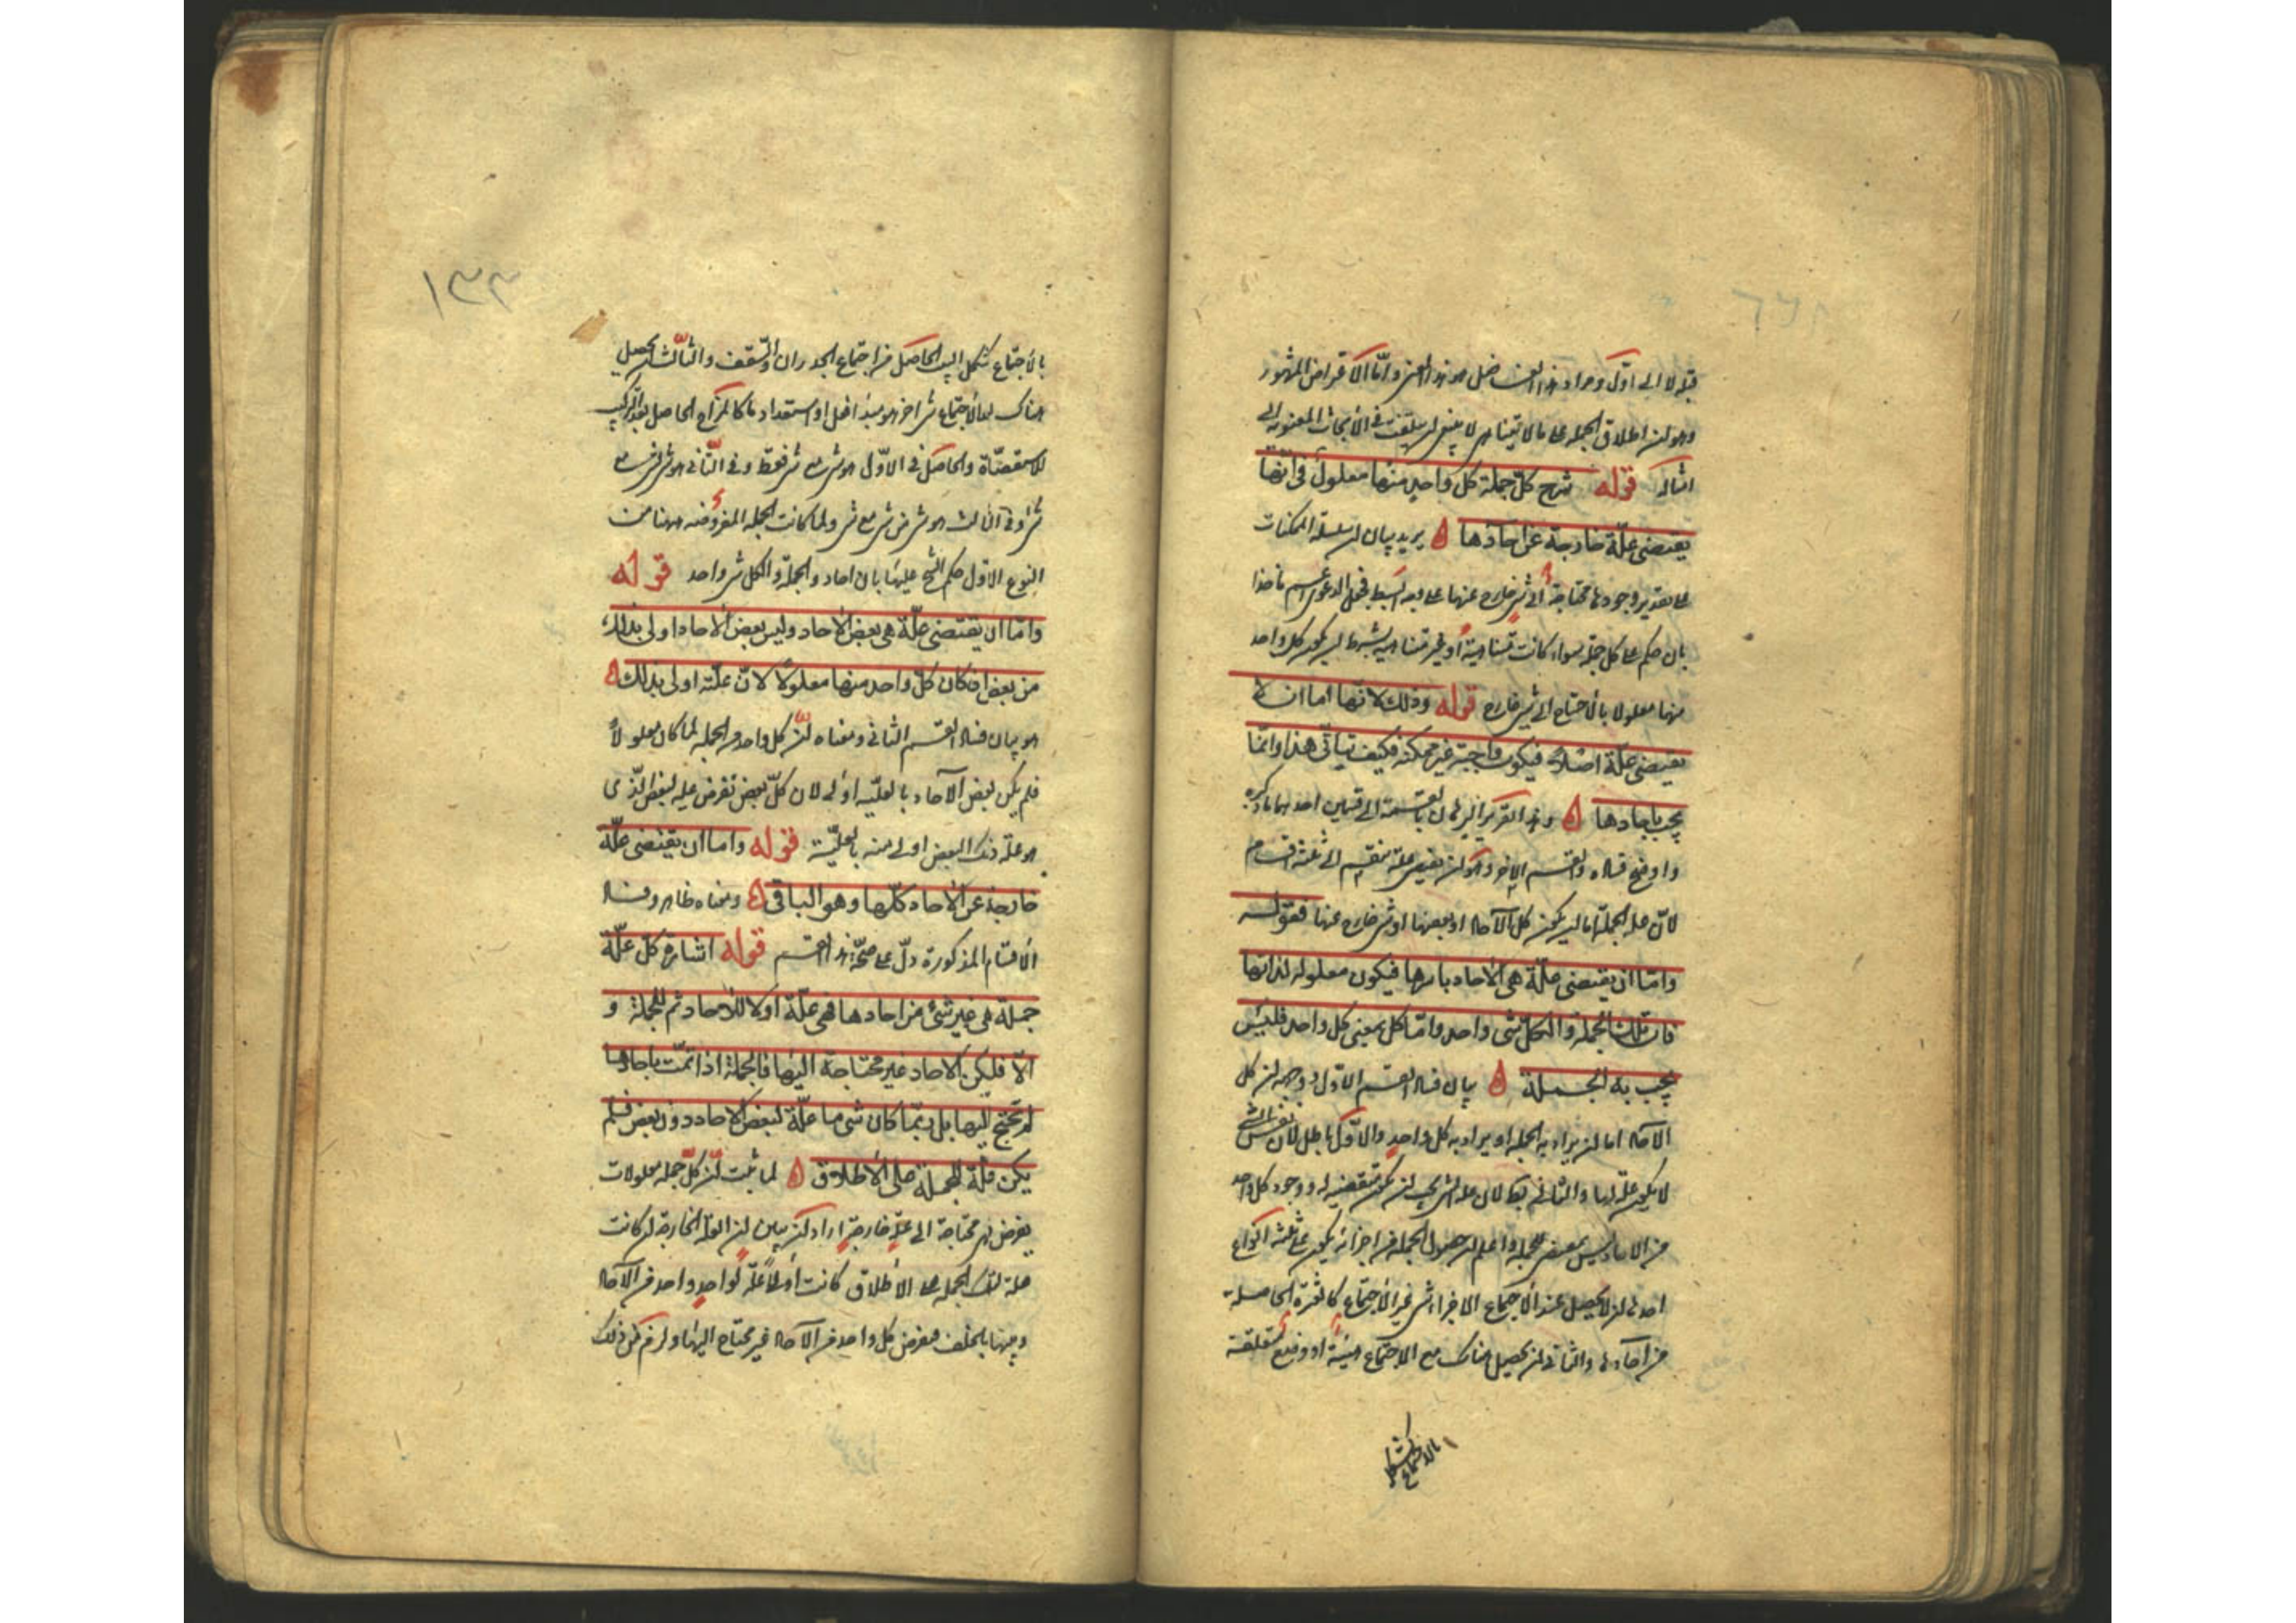 قبله لا الى اول ومراد هذا الفاضل هو هذا المعنى واما الاعتراض المشهور
وهو ان اطلاق الجملة على ما لا يتناهى لا يصح لم يلتفت في الأبحاث المعنوية الى
امثاله قوله شرح كلّ جملة كل واحد منها معلول فانها
يقتضى علّة خارجة عن احادها ه يريد بيان ان سلسلة الممكنات
على تقدير وجودها محتاجة الى شئ خارج عنها على وجه ابسط فجعل الدعوى اعم ماخذا
بان حكم على كل جملة سواء كانت متناهية أو غير متناهية بشرط ان يكون كل واحد
منها معلولا بالاحتياج الى شئ خارج قوله وذلك لانها اما ان لا
يقتضى علّة اصلا فيكون واجبة غير ممكنة فكيف يتأتى هذا وانما
يجب باحادها ه وهذا التقرير
واوضح فساده والقسم الاخر وهو ان يقتضى علة ينقسم الى ثلثة اقسام
لأن علة الجملة اما ان يكون كل الآحاد او بعضها او شئ خارج عنها فقوله
وامّا ان يقتضى علّة هى الأحاد باسرها فيكون معلوله لذاتها
فان تلك الجملة والكلّ شى واحد وامّا كل بمعنى كل واحد فليس
يجب به الجملة ه بيان فساد القسم الاوّل ووجهه ان كل
الآحاد اما ان يراد به الجملة او يراد به كل واحد والاوّل باطل لان نفس الشئ
لا يكون علة لها والثاني لان علة الشئ يجب ان يكون مقتضية له ووجود كل واحد
من الاحاد ليس بمقتض للجملة واعلم ان حصول الجملة من اجزائه يكون على ثلثة انواع
احدها ان لا يحصل عند الاجتماع الاجزاء شئ غير الاجتماع كالعشرة الحاصلة
من آحادها والثاني ان يحصل هناك مع الاجتماع هيئة او وضع متعلقة
بالاجتماع كشكل
١٣٣
بالأجتماع كشكل البيت الحاصل من اجتماع الجدران والسّقف والثالث ان يحصل
هناك بعد الأجتماع شئ اخر هو مبدأ فعل او استعداد ما كالمزاج الحاصل بعد تركيب
الاسطقسات والحاصل في الاوّل هو شئ مع شئ فقط وفي الثّاني هو شئ لشئ مع
شئ وفي الثالث هو شئ من شئ مع شئ ولما كانت الجملة المفروضة ههنا من
النوع الاول حكم الشيخ عليها بان احاد والجملة والكل شئ واحد قوله
وامّا ان يقتضى علّة هى بعض الأحاد وليس بعض الأحاد اولى بذلك
من بعض ان كان كلّ واحد منها معلولا لانّ علّته اولى بذلك ه
هو بيان فساد القسم الثاني ومعناه انّ كل واحد من الجملة لما كان معلولاً
فلم يكن بعض الآحاد بالعليّة اولى لان كلّ بعض نفرض علية فبعض الّذى
هو علّة ذلك البعض اولى منه بالعليّة قوله واما ان يقتضى علّة
خارجة عن الأحاد كلّها وهو الباقى ه ومعناه ظاهر وفساد
الأقسام المذكورة دلّ على صحّة هذا القسم قوله اشارة كلّ علّة
جملة هى غير شئ من احادها فهى علّة اولا للأحاد ثم للجملة و
الّا فليكن الاحاد غير محتاجة اليها فالجملة اذا تمّت باحادها
لم تحتج اليها بل ربّما كان شئ ما علّة لبعض الاحاد دون بعض فلم
يكن علّة للجملة على الأطلاق ه لما ثبت انّ كلّ جملة معلولات
يفرض هى محتاجة الى علّة خارجة اراد ان يبين ان العلة الخارجة ان كانت
علة لتلك الجملة على الأطلاق كانت أولاً علّة لواحد واحد من الآحاد
وبيّنها بالخلف ففرض كل واحد من الآحاد غير محتاج اليها ولزم من ذلك